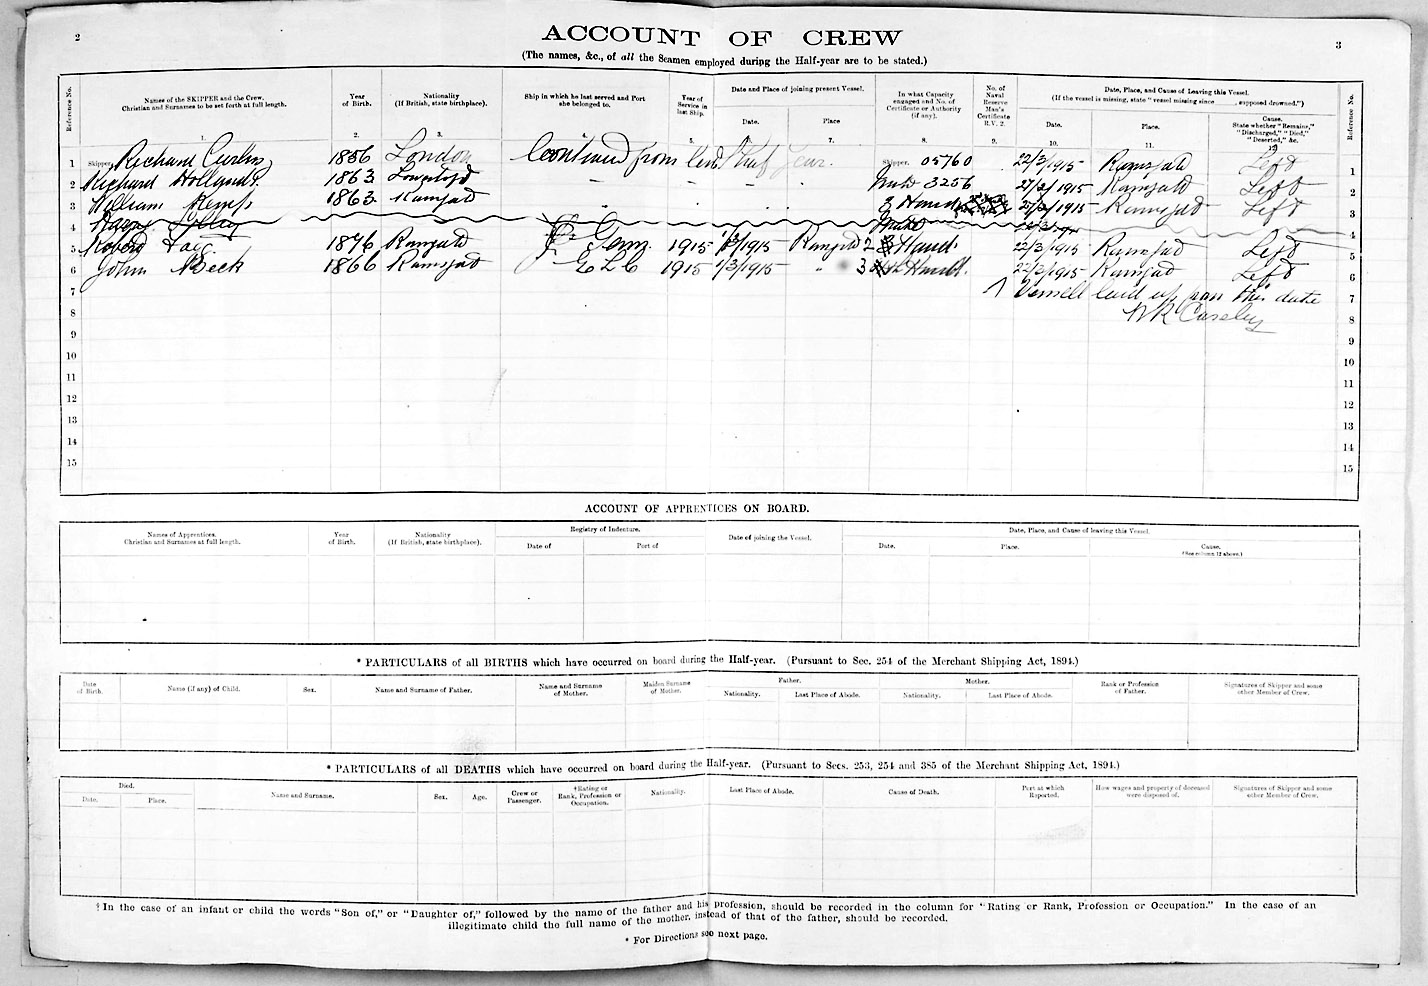 2
3
ACCOUNT OF CREW
(The names, &c., of all the Seamen employed during the Half-year are to be stated.)
Reference No. Names of the SKIPPER and the Crew. Christian and Surnames to be set forth at full length. Year of Birth. Nationality (If British, state birthplace). Ship in which he last served and Port she belonged to. Year of Service in last Ship. Date and Place of joining present Vessel. Date. Place In what Capacity engaged and No. of Certificate or Authority (if any). No. of Naval Reserve Man's Certificate R.V. 2. Date, Place, and Cause of Leaving this Vessel. (If the vessel is missing, state "vessel missing since supposed drowned.") Date. Place. Cause. State whether "Remains," "Discharged," "Died," "Deserted," &c. Reference No.
1. 2. 3. 4. 5. 6. 7. 8. 9. 10. 11. 12
1 Skipper Richard 1856 London Continued from last half year. Skipper. 05760 22/3/1915 Ramsgate Left 1
2 Richard 1863 Mate 3256 27/2/1915 Ramsgate Left 2
3 William Kemp 1863 Ramsgate 3 Hand 27/2/1915 Ramsgate Left 3
4 Mate 4
5 1876 Ramsgate Gem 1915 1915 Ramsgate 2 Hand 22/3/1915 Ramsgate Left 5
6 John Beck 1866 Ramsgate 1915 1/3/1915 " 3 Hand 22/3/1915 Ramsgate Left 6
7 Vessell laid up from this date 7
8 8
9 9
10 10
11 11
12 12
13 13
14 14
15 15
ACCOUNT OF APPRENTICES ON BOARD.
Names of Apprentices. Christian and Surnames at full length. Year of Birth. Nationality (If British, state birthplace). Registry of Indenture. Date of Port of Date of joining the Vessel. Date, Place, and Cause of leaving this Vessel. Date. Place. Cause. (See column 12 above.)
* PARTICULARS of all BIRTHS which have occurred on board during the Half-year. (Pursuant to Sec. 254 of the Merchant Shipping Act, 1894.)
Date of Birth. Name (if any) of Child. Sex. Name and Surname of Father. Name and Surname of Mother. Maiden Surname of Mother. Father. Nationality. Last Place of Abode. Mother. Nationality. Last Place of Abode. Rank or Profession of Father. Signatures of Skipper and some other Member of Crew.
* PARTICULARS of all DEATHS which have occurred on board during the Half-year. (Pursuant to Secs. 253, 254 and 385 of the Merchant Shipping Act, 1894.)
Died. Date. Place. Name and Surname. Sex. Age. Crew or Passenger. †Rating or Rank, Profession or Occupation. Nationality. Last Place of Abode. Cause of Death. Port at which Reported. How wages and property of deceased were disposed of. Signatures of Skipper and some other Member of Crew.
† In the case of an infant or child the words "Son of," or "Daughter of," followed by the name of the father and his profession, should be recorded in the column for "Rating or Rank, Profession or Occupation." In the case of an
illegitimate child the full name of the mother, instead of that of the father, should be recorded.
* For Directions see next page.